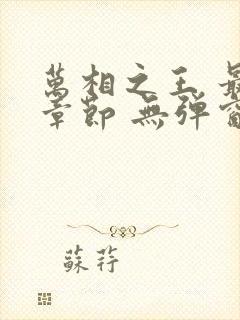 萬相之王 最
章節 無彈窗
蘇荇